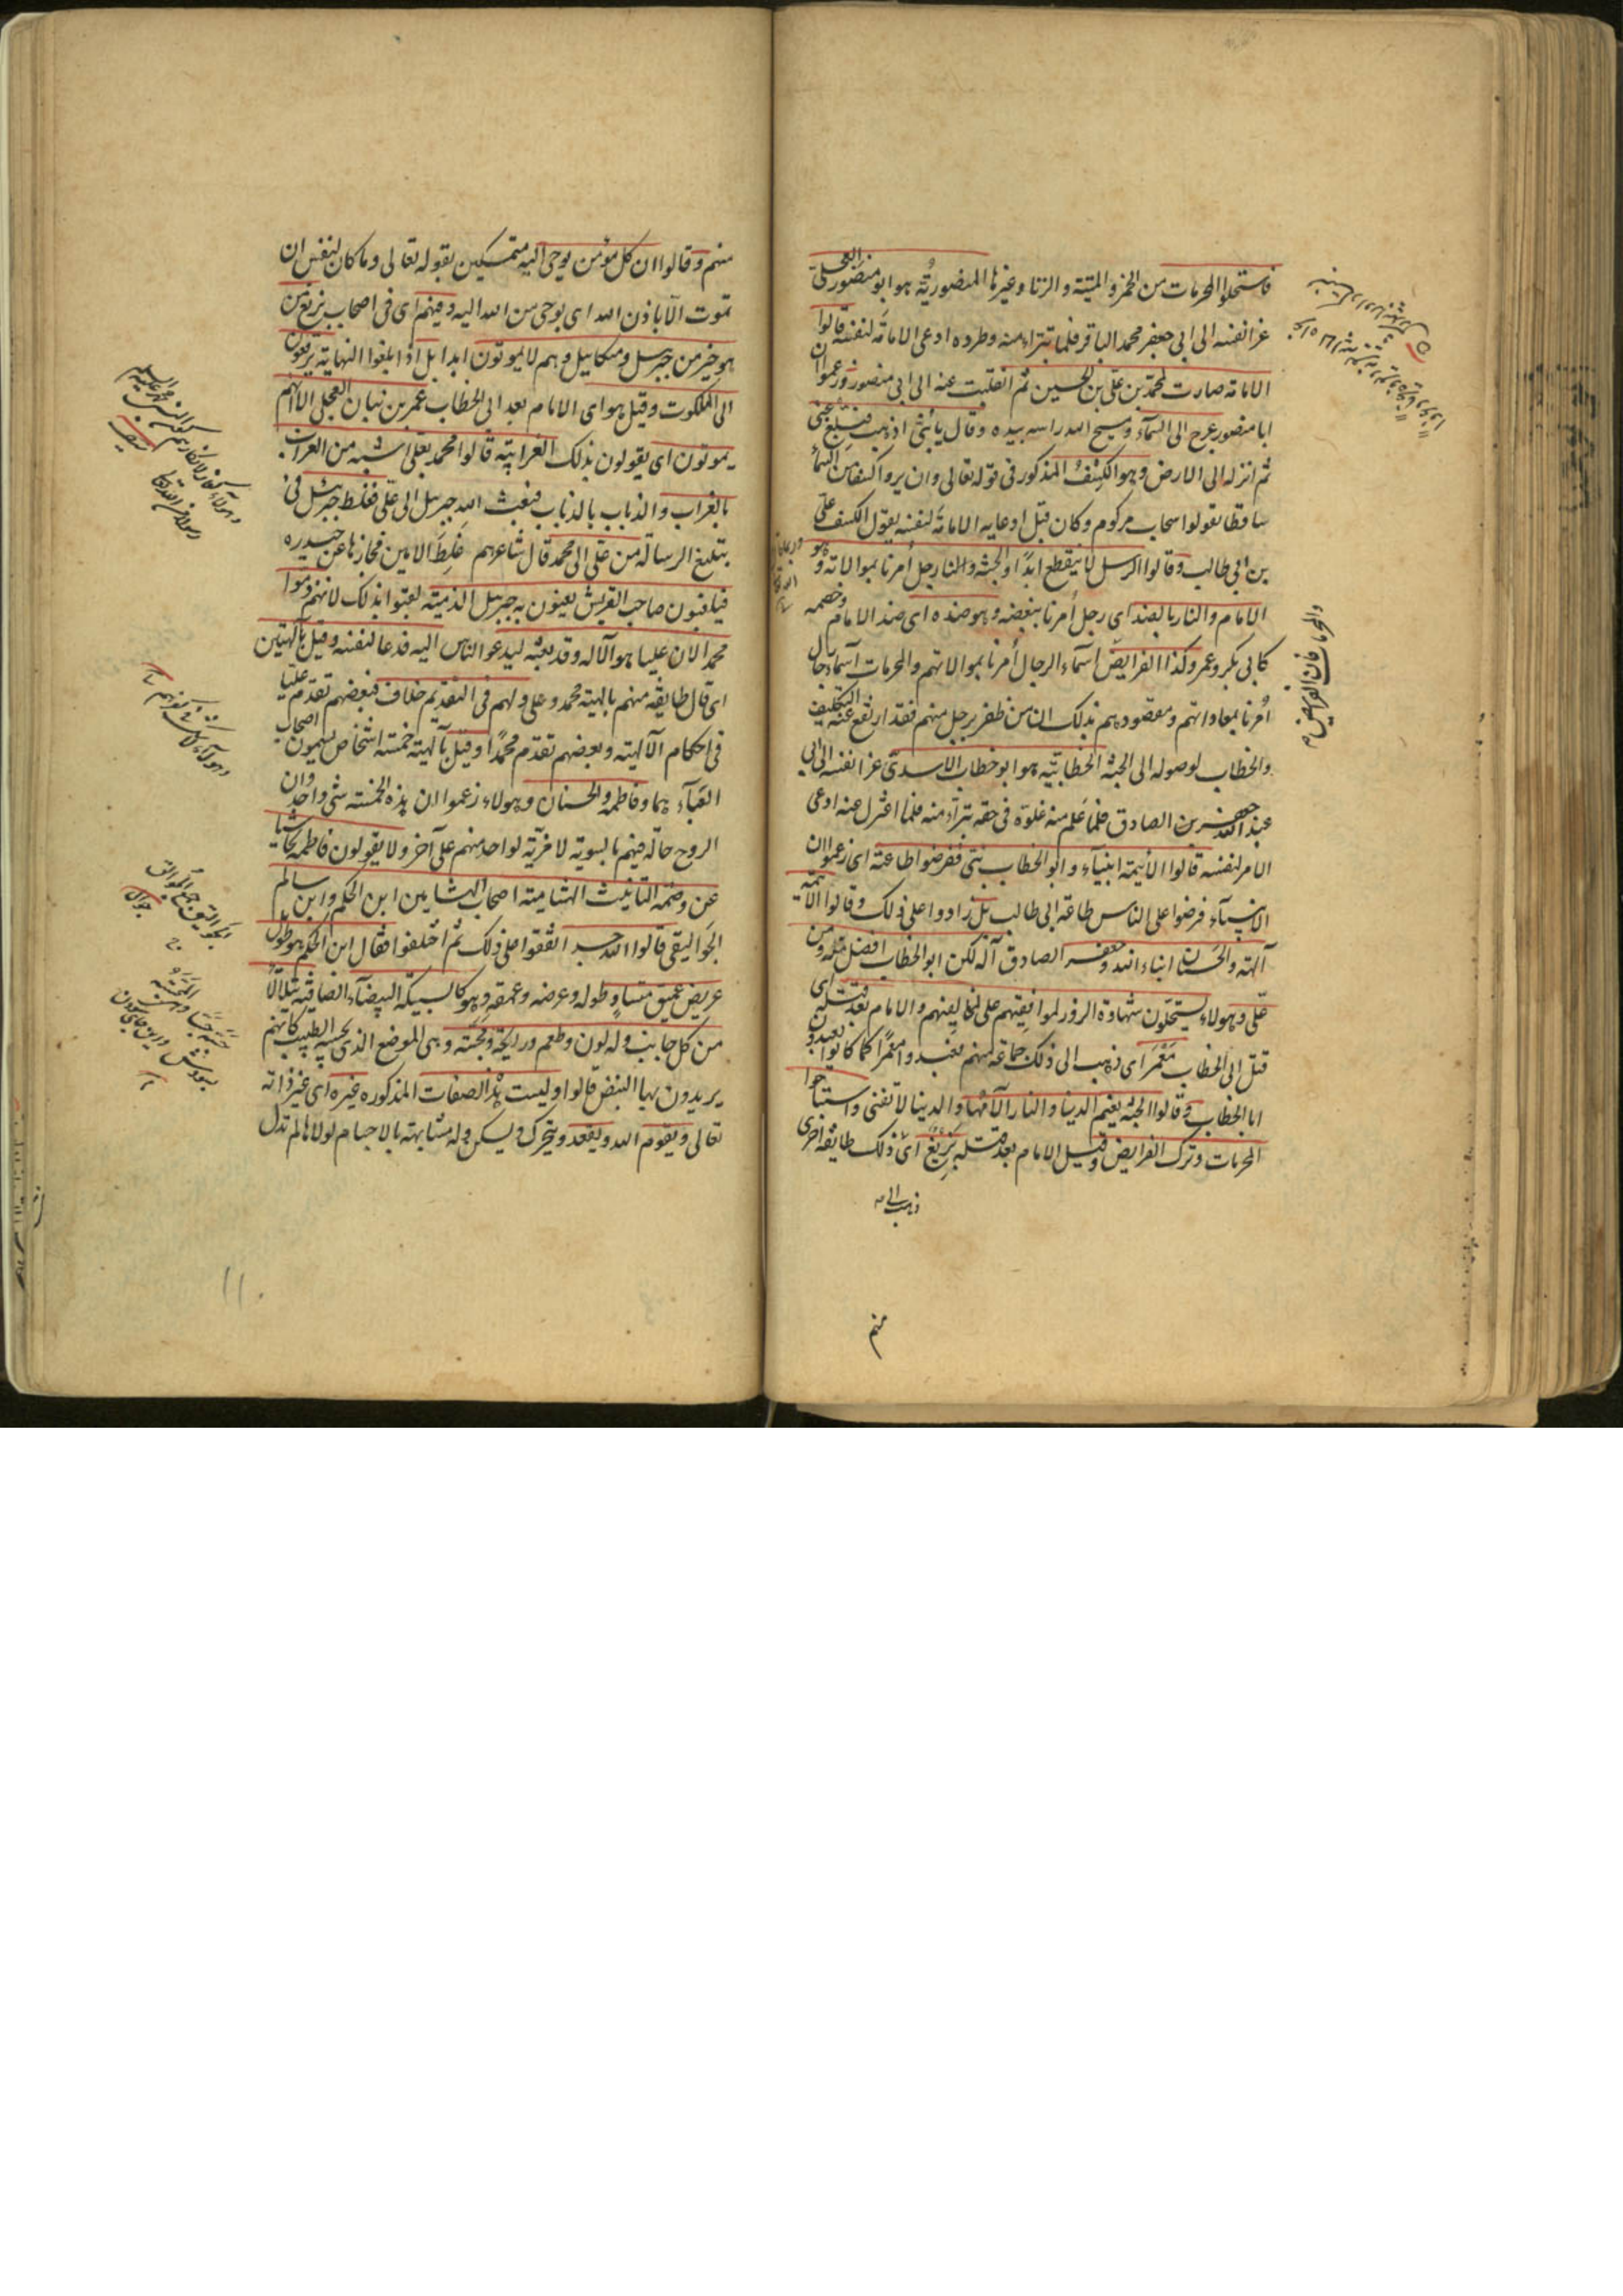 فاستحلوا المحرمات من الخمر والميتة والزنا وغيرها المنصورية هو ابو منصور العجلي
عزا نفسه الى ابي جعفر محمد الباقر فلما تبرأ منه وطرده ادعى الامامة لنفسه قالوا
الامامة صارت لمحمد بن علي بن الحسين ثم انقلبت عنه الى ابي منصور وزعموا ان
ابا منصور عرج الى السماء ومسح الله راسه بيده وقال يا بني اذهب فبلغ عني
ثم انزله الى الارض وهو الكسف المذكور في قوله تعالى وان يروا كسفا من السماء
ساقطا يقولوا سحاب مركوم وكان قبل ادعايه الامامة لنفسه يقول الكسف علي
بن ابي طالب وقالوا الرسل لا ينقطع ابدا والجنة والنار رجل أمرنا بموالاته وهو
الامام والنار بالضد اى رجل أمرنا ببغضه وهو ضده اى ضد الامام وخصمه
كابي بكر وعمر وكذا الفرايض اسماء الرجال أمرنا بموالاتهم والمحرمات اسماء رجال
أمرنا بمعاداتهم ومقصودهم بذلك ان من ظفر برجل منهم فقد ارتفع عنه التكليف
والخطاب لوصوله الى الجنة الخطابية هو ابو خطاب الاسدي عزا نفسه الى ابي
عبد الله جعفر بن الصادق فلما علم منه غلوه في حقه تبرأ منه فلما اعتزل عنه ادعى
الامر لنفسه قالوا الأيمة انبياء وابو الخطاب نبي ففرضوا طاعته اى زعموا ان
الانبياء فرضوا على الناس طاعة ابي طالب بل زادوا على ذلك وقالوا الأيمة
آلهة والحسنان ابناء الله وجعفر الصادق آله لكن ابو الخطاب افضل منه ومن
علي وهولاء يستحلون شهادة الزور لموافقيهم على مخالفيهم والامام بعد قتله اى
قتل ابي الخطاب مَعْمَر اى ذهب الى ذلك جماعة منهم فعبدوا معمرا كما كانوا يعبدون
ابا الخطاب وقالوا الجنة نعيم الدنيا والنار آلامها والدنيا لا تفنى واستباحوا
المحرمات وترك الفرايض وقيل الامام بعد قتله بزيغ اى ذلك طايفة اخرى
ذهب الى
منهم
والمحرمات فان الفرايض
منهم وقالوا ان كل مؤمن يوحى اليه متمسكين بقوله تعالى وما كان لنفس ان
تموت الا باذن الله اى بوحي من الله اليه وفيهم اى في اصحاب بزيغ من
هو خير من جبريل وميكاييل وهم لا يموتون ابدا بل اذا بلغوا النهاية يرفعون
الى الملكوت وقيل هو اى الامام بعد ابي الخطاب عمر بن بنان العجلي الا انهم
يموتون اى يقولون بذلك الغرابية قالوا محمد بعلي اشبه من الغراب
بالغراب والذباب بالذباب فبعث الله جبريل الى علي فغلط جبريل في
تبليغ الرسالة من علي الى محمد قال شاعرهم غلط الامين فجازها عن حيدره
فيلعنون صاحب الريش يعنون به جبريل الذمية لقبوا بذلك لانهم ذموا
محمدا لان عليا هو الآله وقد بعثه ليدعو الناس اليه فدعا لنفسه وقيل بآلهيتهما
اى قال طايفة منهم بالهية محمد وعلي ولهم في التقديم خلاف فبعضهم تقدم عليا
في احكام الآلهية وبعضهم تقدم محمدا وقيل بآلهية خمسة اشخاص يسمون اصحاب
العباء هما وفاطمه والحسنان وهولاء زعموا ان هذه الخمسة شي واحد وان
الروح حالة فيهم بالسوية لا مزية لواحد منهم على آخر ولا يقولون فاطمه تحاشيا
عن وصمة التانيث الهشامية اصحاب الهشامين ابن الحكم وابن سالم
الجواليقي قالوا الله جسد اتفقوا على ذلك ثم اختلفوا فقال ابن الحكم هو طويل
عريض عميق متساو طوله وعرضه وعمقه وهو كالسبيكة البيضاء الصافية يتلألأ
من كل جانب وله لون وطعم ورايحة ومجسة وهي الموضع الذي يجسه الطبيب كانهم
يريدون بها النبض قالوا وليست هذه الصفات المذكوره غيره اى غير ذاته
تعالى ويقوم الله ويقعد ويتحرك ويسكن وله مشابهة بالاجسام لولاها لم تدل
١١